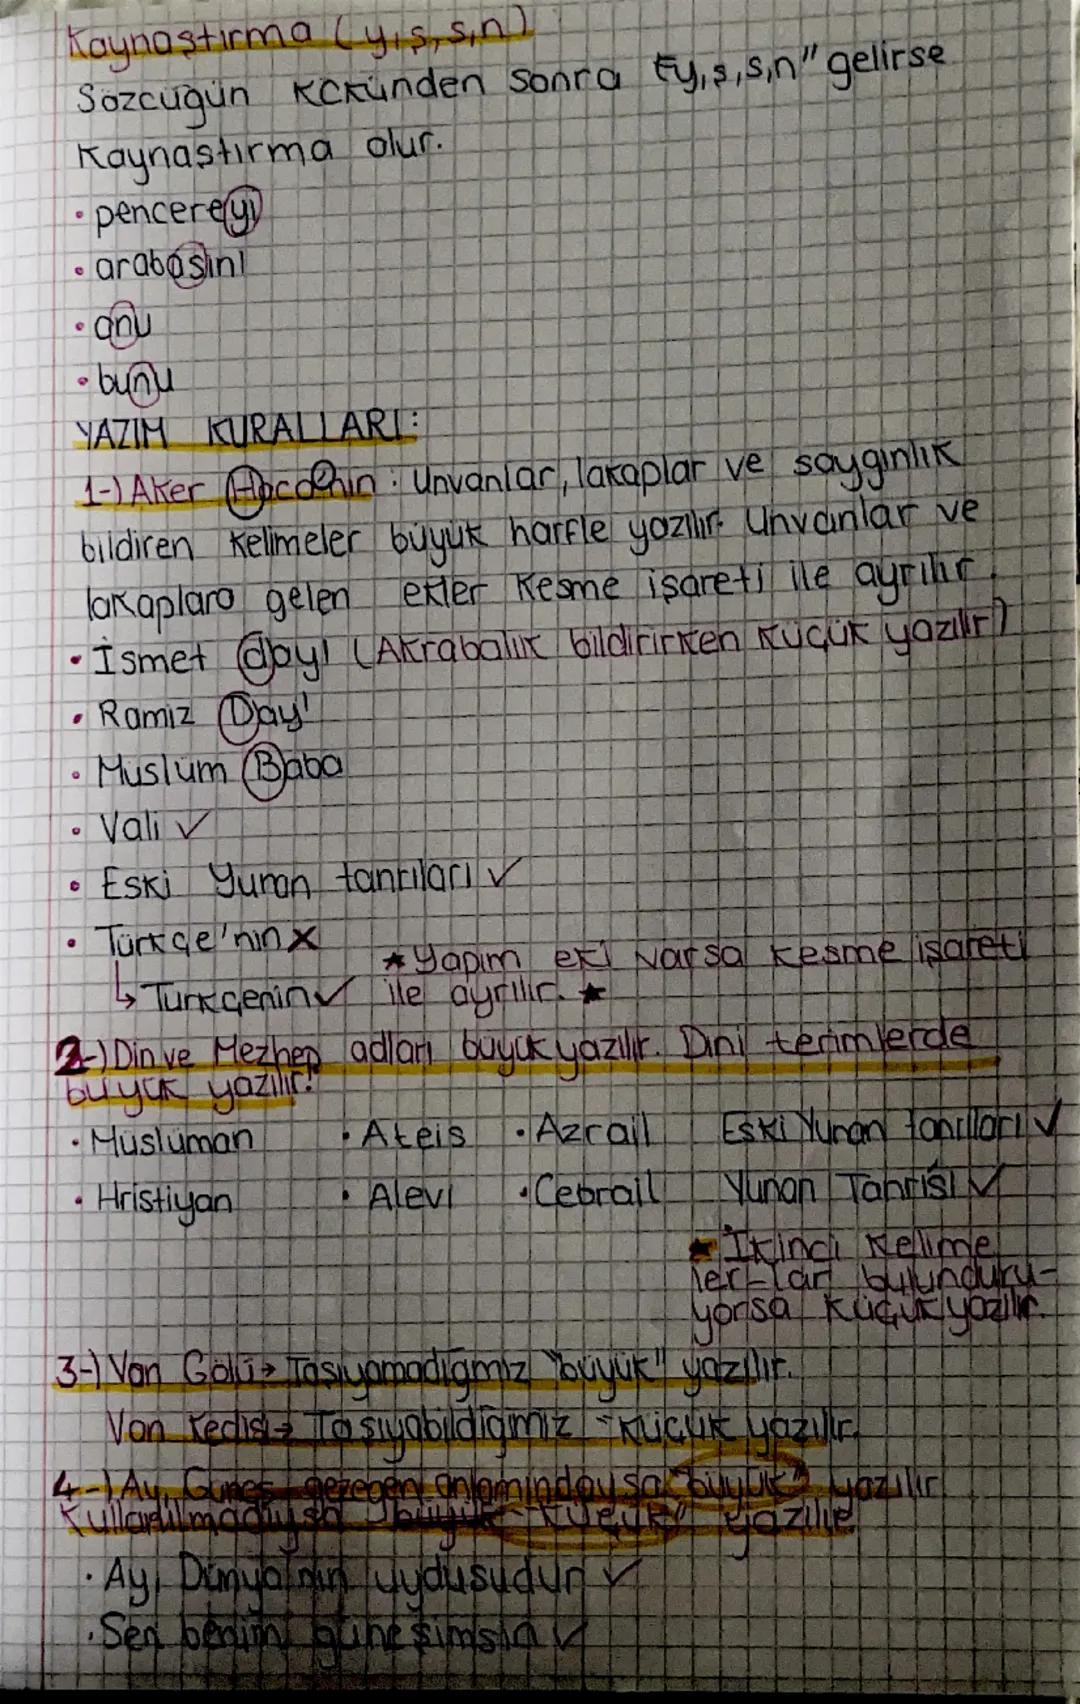 Kaynaştırma (y,ş,s,n)
Sözcüğün kökünden sonra "y,ş,s,n" gelirse
Kaynaştırma olur.
• pencereyi
• arabasını
• onu
• bunu
YAZIM KURALLARI:
1-) Aker Hoca'nın : Unvanlar, lakaplar ve saygınlık
bildiren kelimeler büyük harfle yazılır. Unvanlar ve
lakaplara gelen ekler kesme işareti ile ayrılır.
• İsmet dayı (Akrabalık bildirirken küçük yazılır)
• Ramiz Dayı
• Müslüm Baba
• Vali ✓
• Eski Yunan tanrıları ✓
• Türkçe'nin x
↳ Türkçenin ✓
★ Yapım eki varsa kesme işareti
ile ayrılır. ★
2-) Din ve Mezhep adları büyük yazılır. Dini terimlerde
büyük yazılır.
• Müslüman • Ateis • Azrail Eski Yunan tanrıları ✓
• Hristiyan • Alevi • Cebrail Yunan Tanrısı ✓
★ İkinci kelime
ler-lar bulunduru-
yorsa küçük yazılır.
3-) Van Gölü → Taşıyamadığımız "büyük" yazılır.
Van kedisi → Taşıyabildiğimiz - küçük yazılır.
4-) Ay, Güneş gezegen anlamındaysa "büyük" yazılır
Kullanılmadıysa "küçük" yazılır
• Ay, Dünya'nın uydusudur ✓
• Sen benim güneşimsin ✓